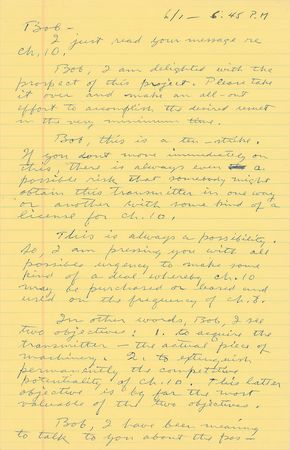 6/1 — 6:45 P.M
Bob —
I just read your message re
Ch. 10.
Bob, I am delighted with the
prospect of this project. Please take
it over and make an all-out
effort to accomplish the desired result
in the very minimum time.
Bob, this is a ten-strike.
If you don't move immediately on
this, there is always even a
possible risk that somebody might
obtain this transmitter in one way
or another with some kind of a
license for ch. 10.
This is always a possibility.
So, I am pressing you with all
possible urgency to make some
kind of a deal whereby ch. 10
may be purchased or leased and
used on the frequency of ch. 8.
In other words, Bob, I see
two objectives: 1. to acquire the
transmitter — the actual piece of
machinery. 2. to extinguish
permanently the competitive
potentiality of ch. 10. This latter
objective is by far the most
valuable of the two objectives.
Bob, I have been meaning
to talk to you about the pos —